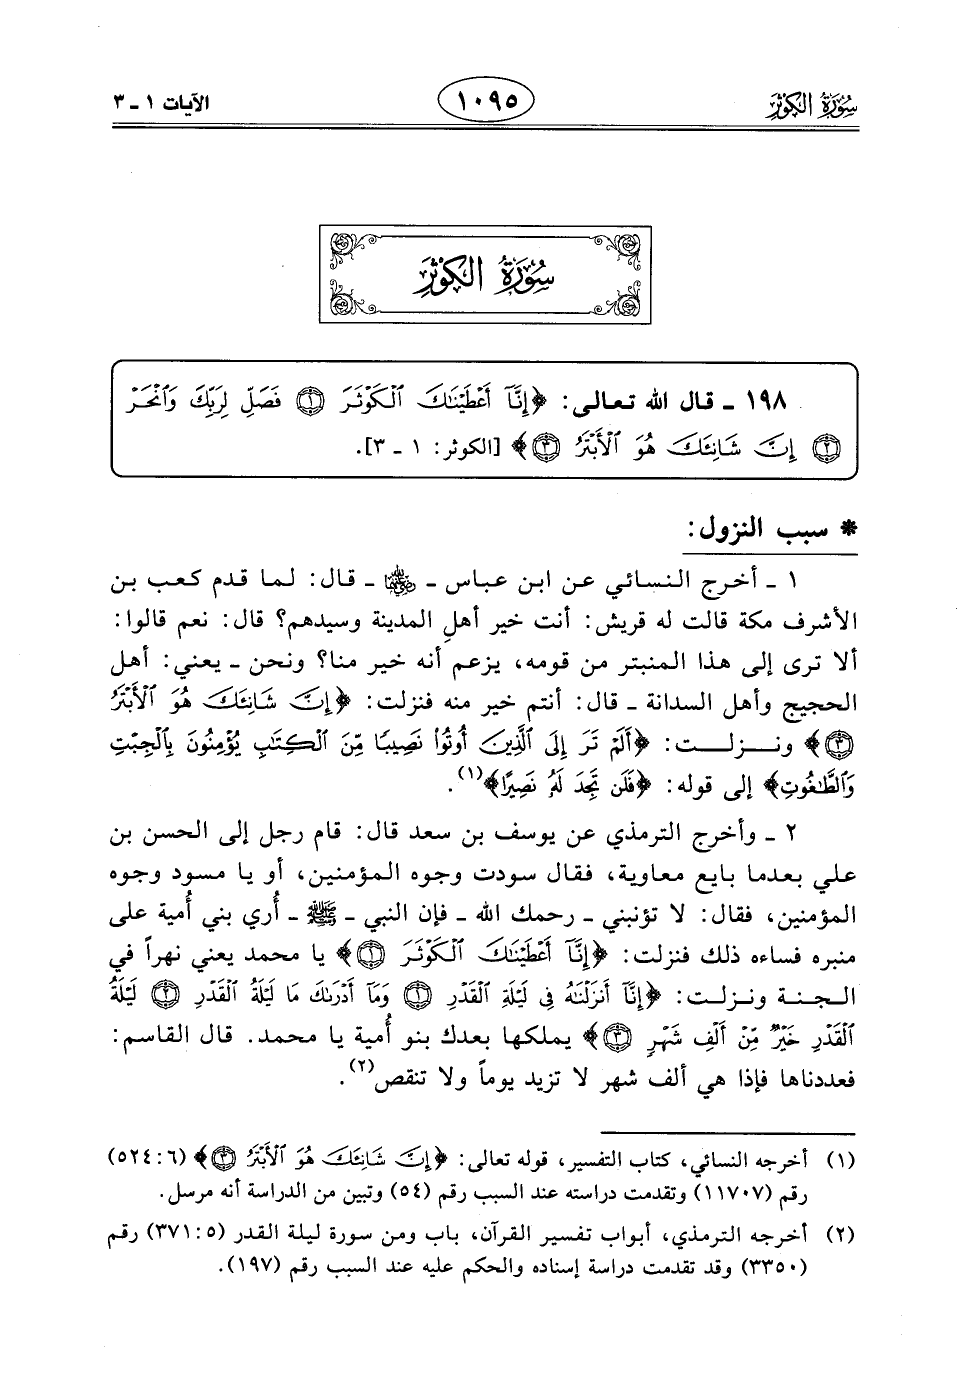 سورة الكوثر ١٠٩٥ الآيات ١ ـ ٣
سُورَةُ الكَوْثَرِ
١٩٨ ـ قال الله تعالى: ﴿إِنَّآ أَعْطَيْنَٰكَ ٱلْكَوْثَرَ ۝١ فَصَلِّ لِرَبِّكَ وَٱنْحَرْ
۝٢ إِنَّ شَانِئَكَ هُوَ ٱلْأَبْتَرُ ۝٣﴾ [الكوثر: ١ ـ ٣].
* سبب النزول:
١ ـ أخرج النسائي عن ابن عباس ـ رضي الله عنهما ـ قال: لما قدم كعب بن
الأشرف مكة قالت له قريش: أنت خير أهلِ المدينة وسيدهم؟ قال: نعم قالوا:
ألا ترى إلى هذا المنبتر من قومه، يزعم أنه خير منا؟ ونحن ـ يعني: أهل
الحجيج وأهل السدانة ـ قال: أنتم خير منه فنزلت: ﴿إِنَّ شَانِئَكَ هُوَ ٱلْأَبْتَرُ
۝٣﴾ ونـزلـت: ﴿أَلَمْ تَرَ إِلَى ٱلَّذِينَ أُوتُوا۟ نَصِيبًا مِّنَ ٱلْكِتَٰبِ يُؤْمِنُونَ بِٱلْجِبْتِ
وَٱلطَّٰغُوتِ﴾ إلى قوله: ﴿فَلَن تَجِدَ لَهُۥ نَصِيرًا﴾(١).
٢ ـ وأخرج الترمذي عن يوسف بن سعد قال: قام رجل إلى الحسن بن
علي بعدما بايع معاوية، فقال سودت وجوه المؤمنين، أو يا مسود وجوه
المؤمنين، فقال: لا تؤنبني ـ رحمك الله ـ فإن النبي ـ ﷺ ـ أُري بني أمية على
منبره فساءه ذلك فنزلت: ﴿إِنَّآ أَعْطَيْنَٰكَ ٱلْكَوْثَرَ ۝١﴾ يا محمد يعني نهراً في
الجنة ونزلت: ﴿إِنَّآ أَنزَلْنَٰهُ فِى لَيْلَةِ ٱلْقَدْرِ ۝١ وَمَآ أَدْرَىٰكَ مَا لَيْلَةُ ٱلْقَدْرِ ۝٢ لَيْلَةُ
ٱلْقَدْرِ خَيْرٌ مِّنْ أَلْفِ شَهْرٍ ۝٣﴾ يملكها بعدك بنو أُمية يا محمد. قال القاسم:
فعددناها فإذا هي ألف شهر لا تزيد يوماً ولا تنقص(٢).
(١) أخرجه النسائي، كتاب التفسير، قوله تعالى: ﴿إِنَّ شَانِئَكَ هُوَ ٱلْأَبْتَرُ ۝٣﴾ (٦:٥٢٤)
رقم (١١٧٠٧) وتقدمت دراسته عند السبب رقم (٥٤) وتبين من الدراسة أنه مرسل.
(٢) أخرجه الترمذي، أبواب تفسير القرآن، باب ومن سورة ليلة القدر (٥:٣٧١) رقم
(٣٣٥٠) وقد تقدمت دراسة إسناده والحكم عليه عند السبب رقم (١٩٧).